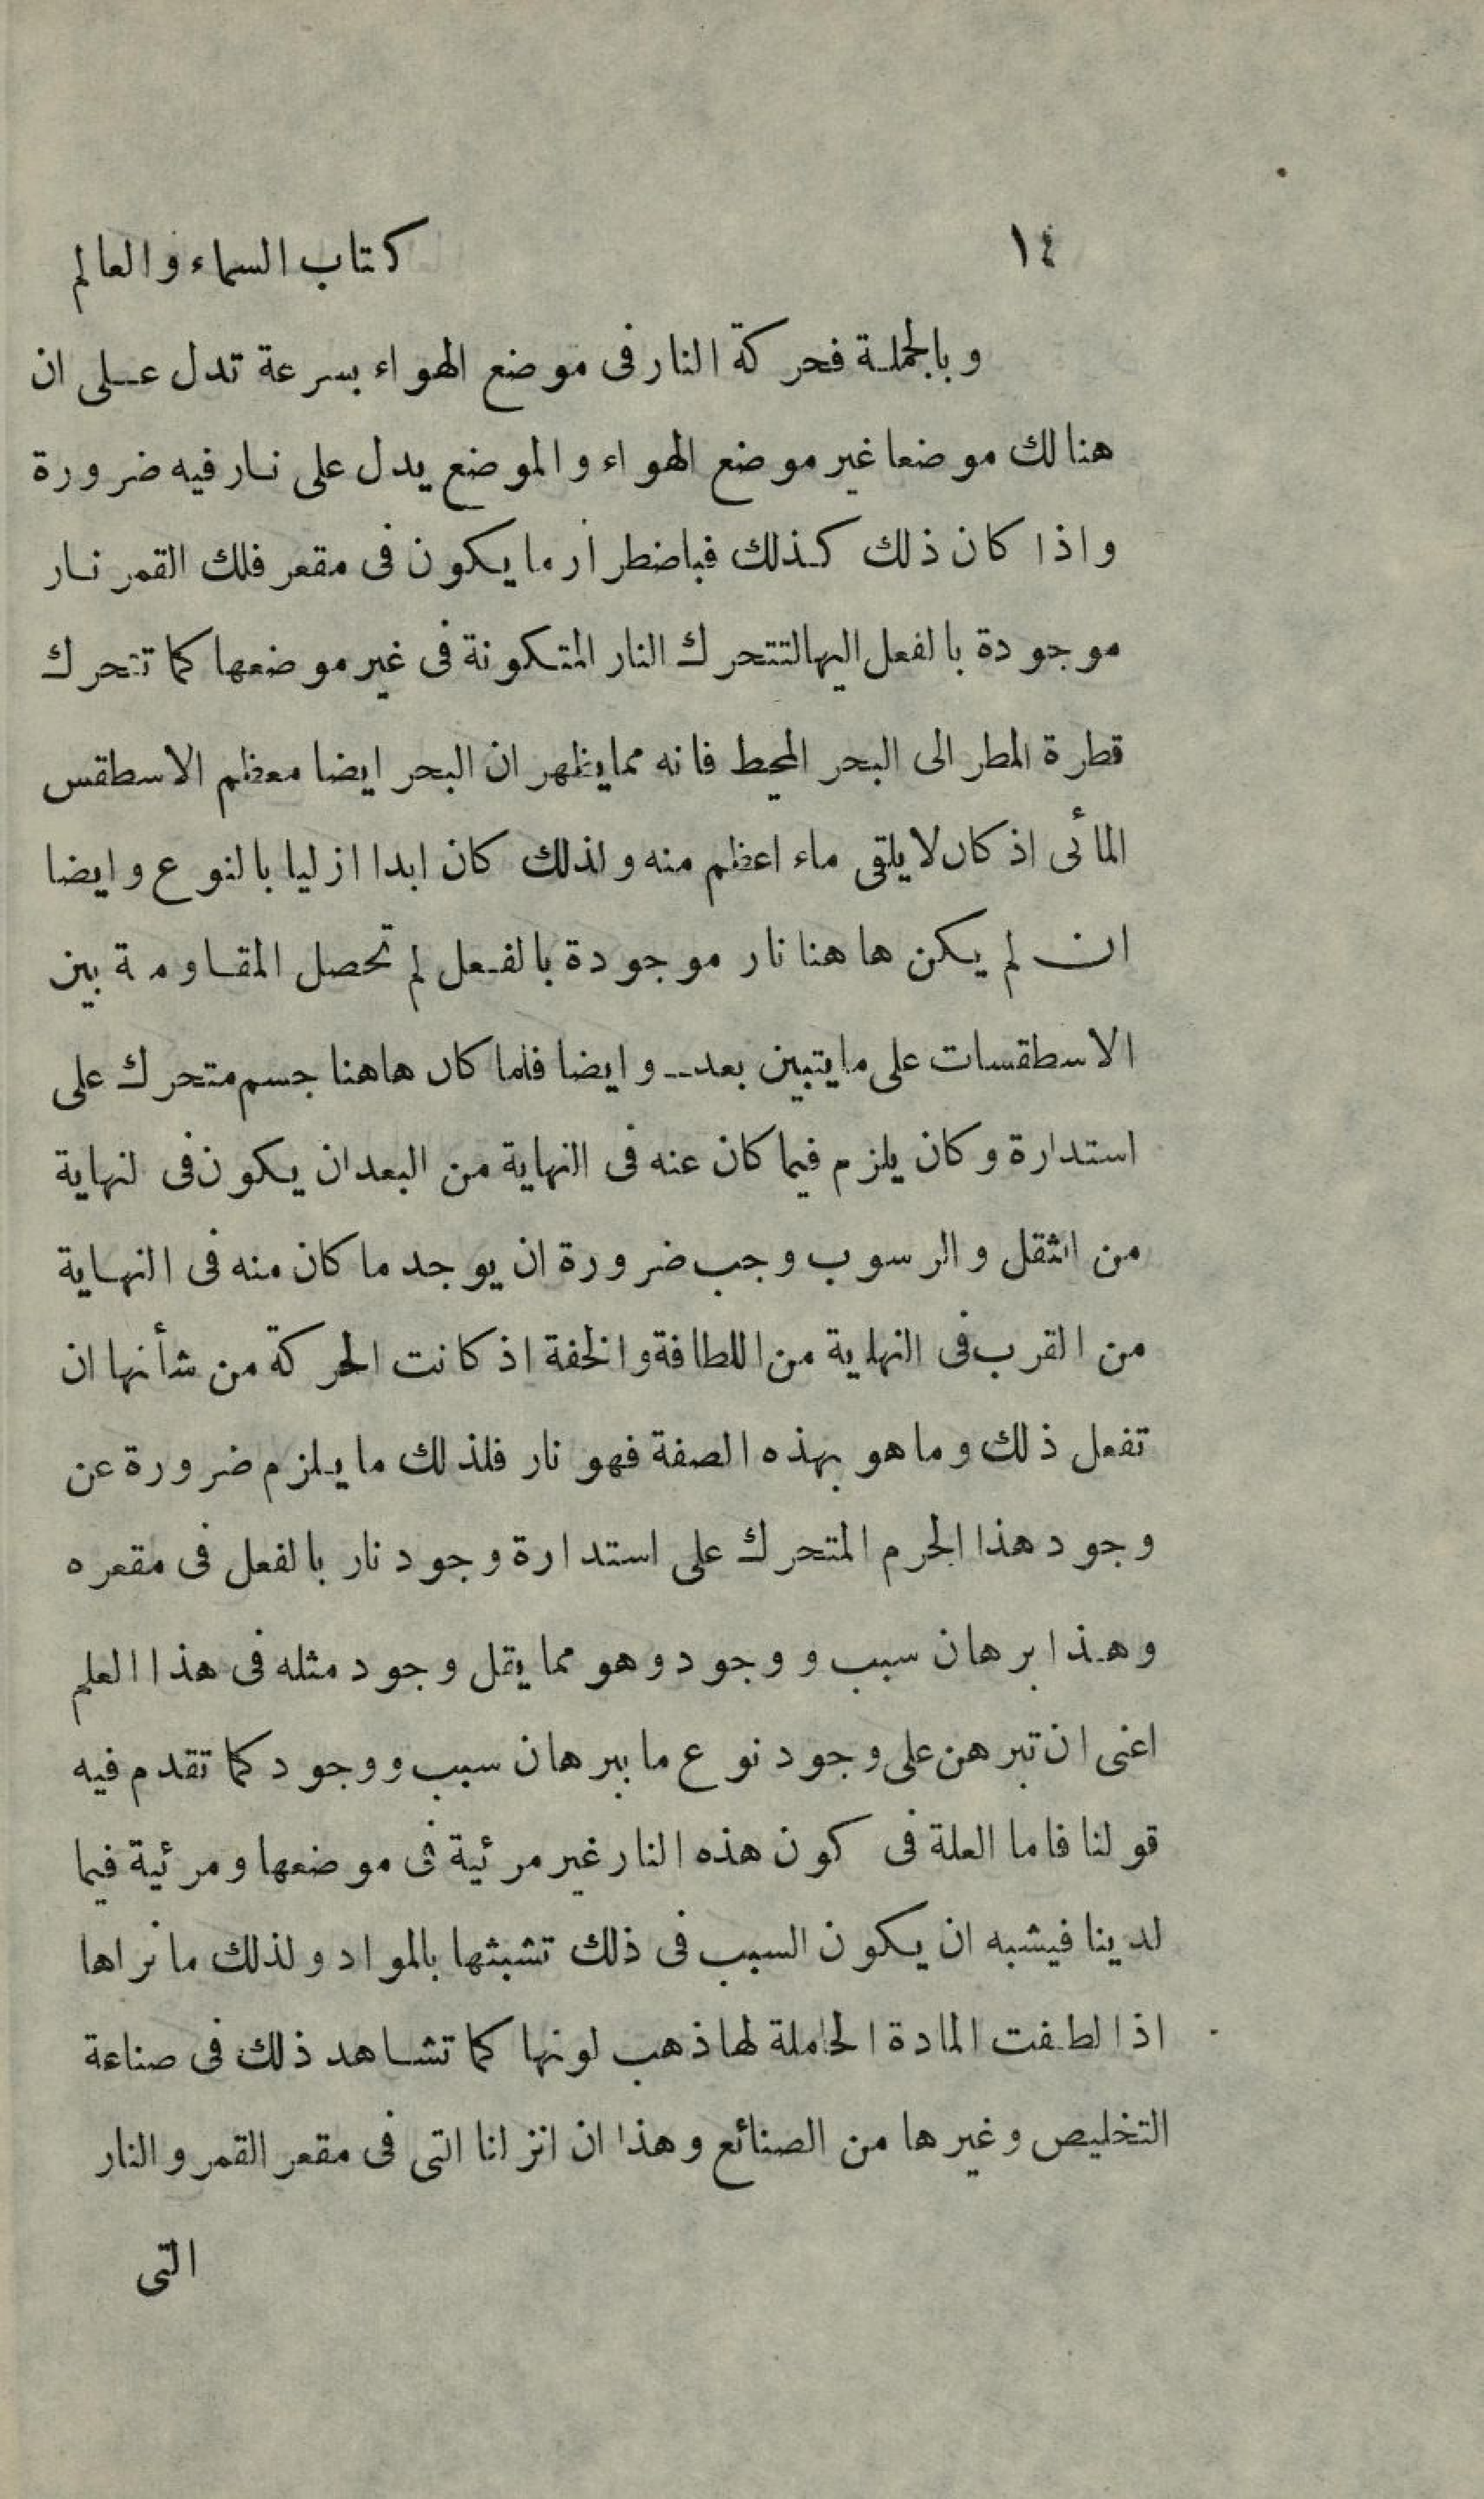 ١٤
كتاب السماء والعالم
وبالجملة فحركة النار فى موضع الهواء بسرعة تدل على ان
هنالك موضعا غير موضع الهواء والموضع يدل على نار فيه ضرورة
واذا كان ذلك كذلك فباضطرار ما يكون فى مقعر فلك القمر نار
موجودة بالفعل اليها لتتحرك النار المتكونة فى غير موضعها كما تتحرك
قطرة المطر الى البحر المحيط فانه مما يظهر ان البحر ايضا معظم الاسطقس
المائى اذ كان لا يلقى ماء اعظم منه ولذلك كان ابدا ازليا بالنوع وايضا
ان لم يكن ها هنا نار موجودة بالفعل لم تحصل المقاومة بين
الاسطقسات على ما يتبين بعد۔۔ وايضا فلما كان هاهنا جسم متحرك على
استدارة وكان يلزم فيما كان عنه فى النهاية من البعد ان يكون فى لنهاية
من الثقل والرسوب وجب ضرورة ان يوجد ما كان منه فى النهاية
من القرب فى النهاية من اللطافة والخفة اذ كانت الحركة من شأنها ان
تفعل ذلك وما هو بهذه الصفة فهو نار فلذلك ما يلزم ضرورة عن
وجود هذا الجرم المتحرك على استدارة وجود نار بالفعل فى مقعره
وهذا برهان سبب ووجود وهو مما يقل وجود مثله فى هذا العلم
اعنى ان تبرهن على وجود نوع ما ببرهان سبب ووجود كما تقدم فيه
قولنا فاما العلة فى كون هذه النار غير مرئية فى موضعها ومرئية فيما
لدينا فيشبه ان يكون السبب فى ذلك تشبثها بالمواد ولذلك ما نراها
اذا لطفت المادة الحاملة لها ذهب لونها كما تشاهد ذلك فى صناعة
التخليص وغيرها من الصنائع وهذا ان انزلنا التى فى مقعر القمر والنار
التى